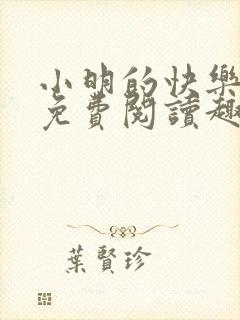 小明的快樂
免費閱讀趣
葉賢珍